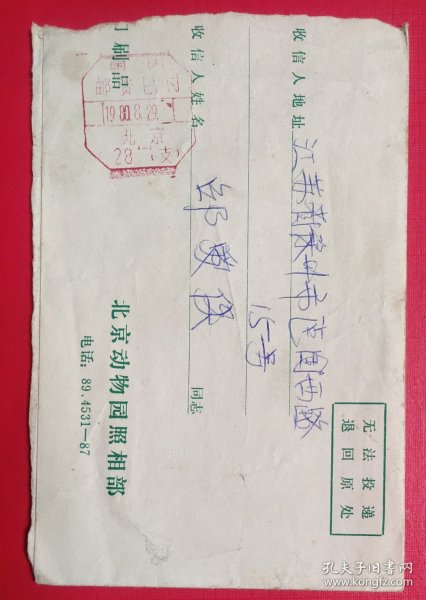 收信人地址 江苏 州市 西路
15号
收信人姓名 同志
印刷品
国内
邮资已付
1980.8.29.
北京
28 (支)
北京动物园照相部
电话：89.4531—87
无法投递
退回原处
孔夫子旧书网
www.kongfz.com